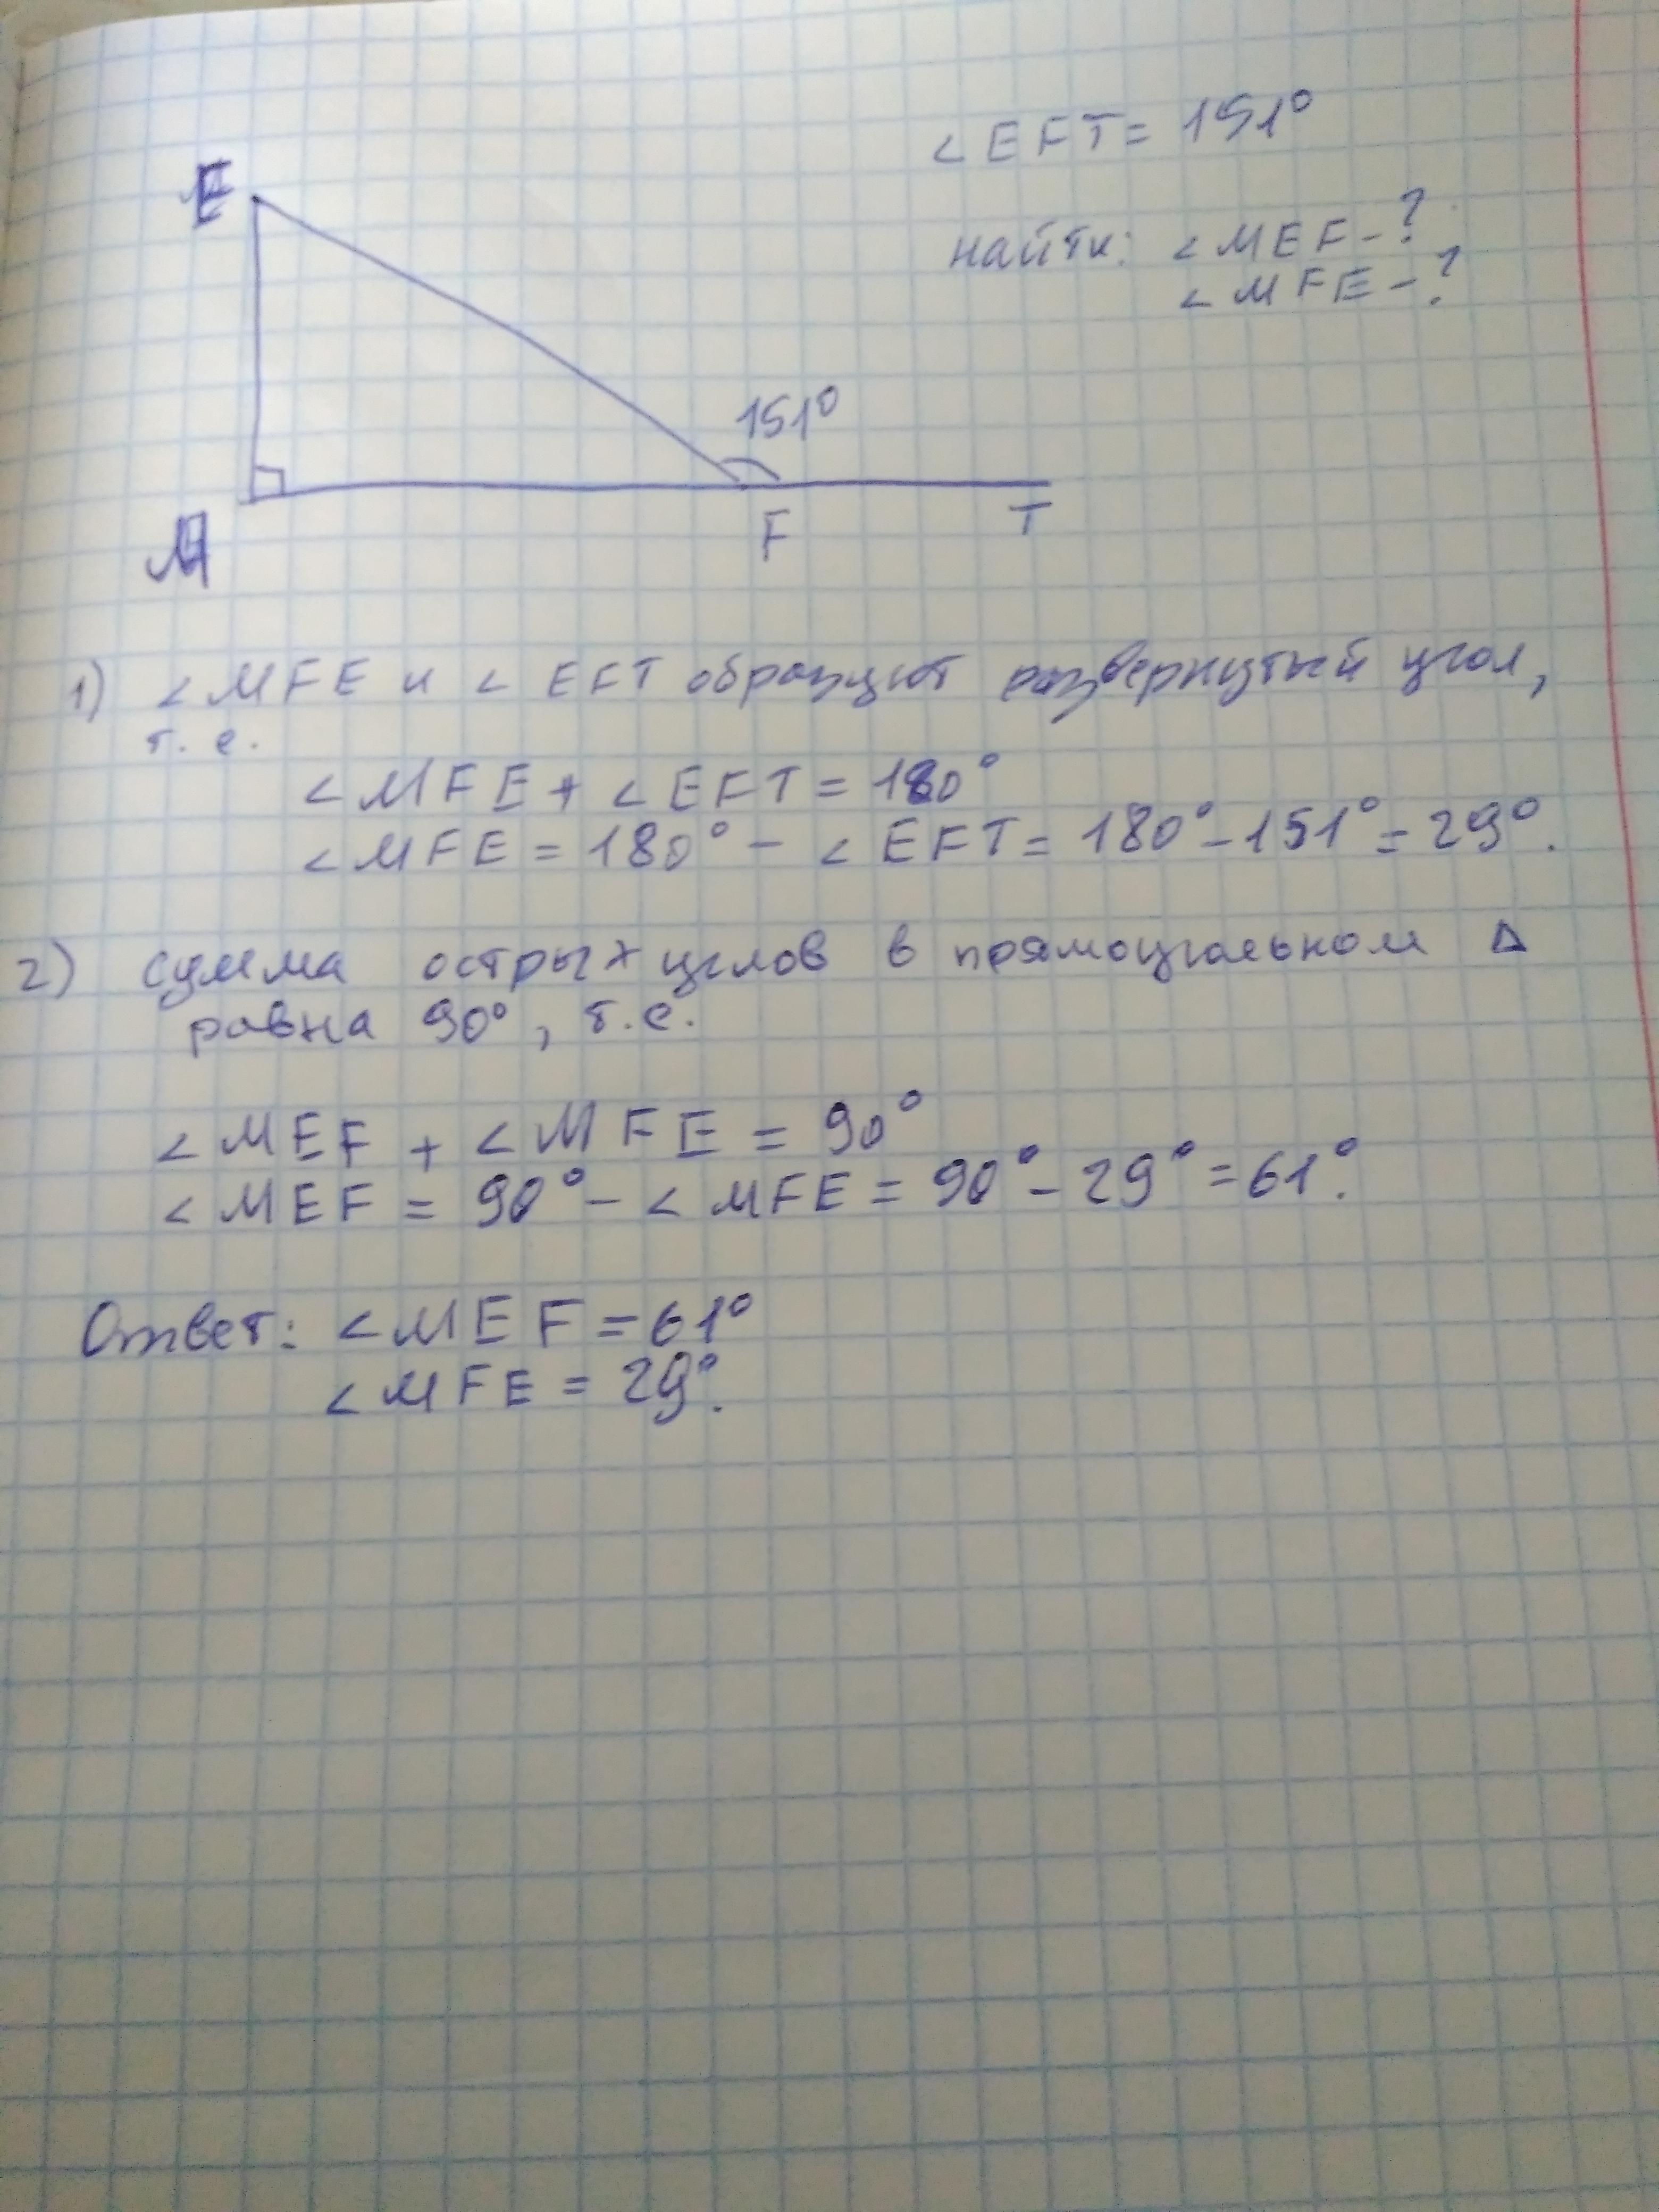 ∠EFT = 151°
найти: ∠MEF - ?
∠MFE - ?
E
151°
M
F
T
1) ∠MFE и ∠EFT образуют развернутый угол,
т. е.
∠MFE + ∠EFT = 180°
∠MFE = 180° - ∠EFT = 180° - 151° = 29°.
2) сумма острых углов в прямоугольном Δ
равна 90°, т. е.
∠MEF + ∠MFE = 90°
∠MEF = 90° - ∠MFE = 90° - 29° = 61°.
Ответ: ∠MEF = 61°
∠MFE = 29°.